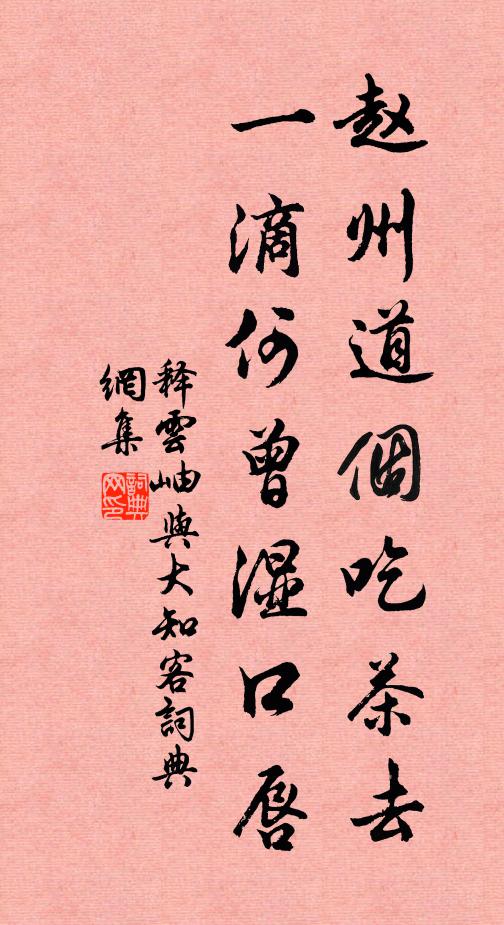 赵州道個吃茶去
一滴何曾湿口唇
释雲岫與大知客詞典
網集
詞典
网印